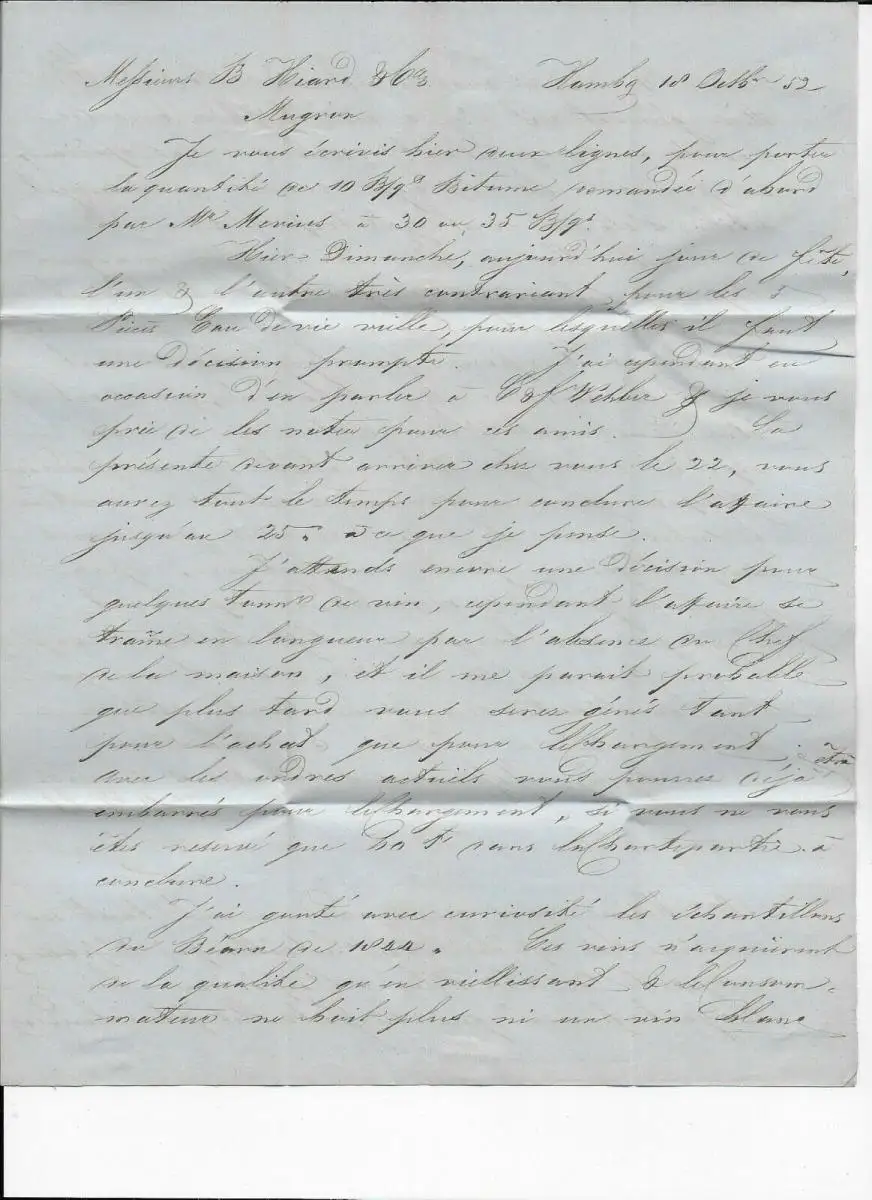 Messieurs B Hiard & Co Hambg 18 Octbr 52
Mugron
Je vous écrivis hier deux lignes, pour porter
la quantité de 10 B/qs Bitume demandée d'abord
par Mr Merius à 30 ou 35 B/qs.
Hier Dimanche, aujourd'hui jour de fête,
l'un & l'autre très contrariant, pour les 5
Pièces Eau de vie vieille, pour lesquelles il faut
une décision prompte. J'ai cependant eu
occasion d'en parler à & je vous
prie de les noter pour ces amis. La
présente devant arriver chez vous le 22, vous
aurez tout le temps pour conclure l'afaire
jusqu'au 25. à ce que je pense.
J'attends encore une décision pour
quelques tonnx de vin, cependant l'afaire se
traîne en longueur par l'absence du Chef
de la maison, et il me parait probable
que plus tard vous serez gênés tant
pour l'achat que pour leChargement.
Avec les ordres actuels vous pourrez déjà être
embarrés pour leChargement, si vous ne vous
êtes reservé que T dans laChartepartie à
conclure.
J'ai gouté avec curiosité les échantillons
du Béarn de 1822. Ces vins n'acquièrent
de la qualité qu'en vieillissant & leConsom-
mateur ne boit plus ni un vin blanc